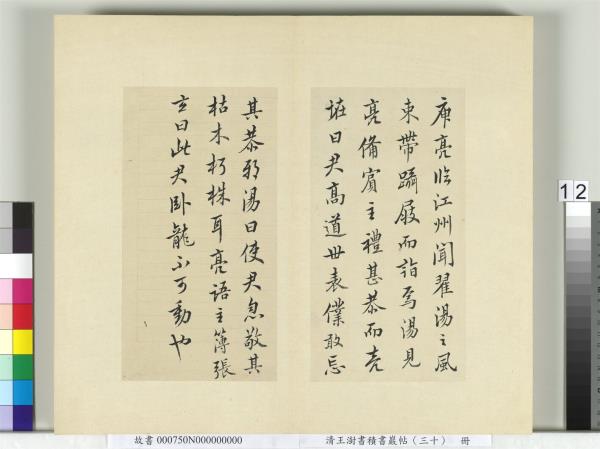 庾亮臨江州聞翟湯之風
束帶躡屐而詣焉湯見
亮備賓主禮甚恭而亮
曰君高道世表僕敢忘
其恭邪湯曰使君忽敬其
枯木朽株耳亮語主簿張
玄曰此君臥龍不可動也
12
故書 000750N000000000
清王澍書積書巖帖(三十) 冊